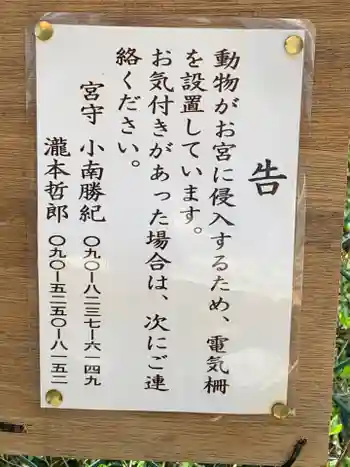 告
動物がお宮に侵入するため、電気柵
を設置しています。
お気付きがあった場合は、次にご連
絡ください。
宮守 小南勝紀 〇九〇ー八二三七ー六一四九
瀧本哲郎 〇九〇ー五二五〇ー八一五二